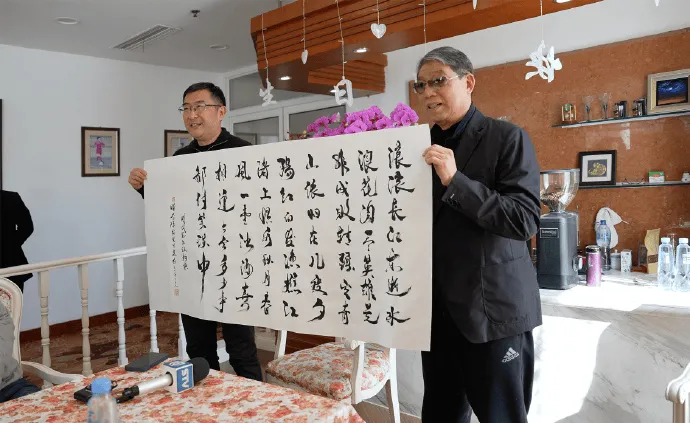 生日
滚滚長江东逝水
浪花淘尽英雄是
非成败转头空青
山依旧在几度夕
阳红白发渔樵江
渚上惯看秋月春
风一壶浊酒喜
相逢古今多少事
都付笑谈中
STV
adidas